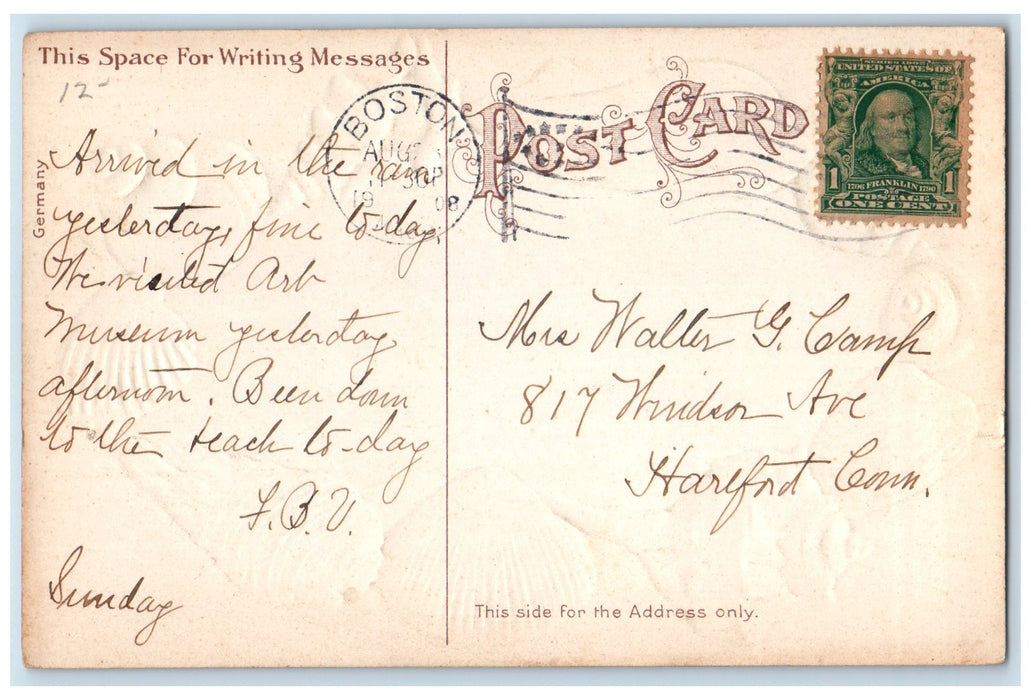 This Space For Writing Messages
12-
Germany
Arrived in the rain
yesterday, fine to-day.
We visited Art
Museum yesterday
afternoon. Been down
to the beach to-day
F.B.V.
Sunday
BOSTON
AUG
30P
19 08
POST CARD
SERIES 1902
UNITED STATES OF
AMERICA
1 1
1706 FRANKLIN 1790
POSTAGE
ONE CENT
Mrs Walter G. Camp
817 Windsor Ave
Hartford Conn.
This side for the Address only.